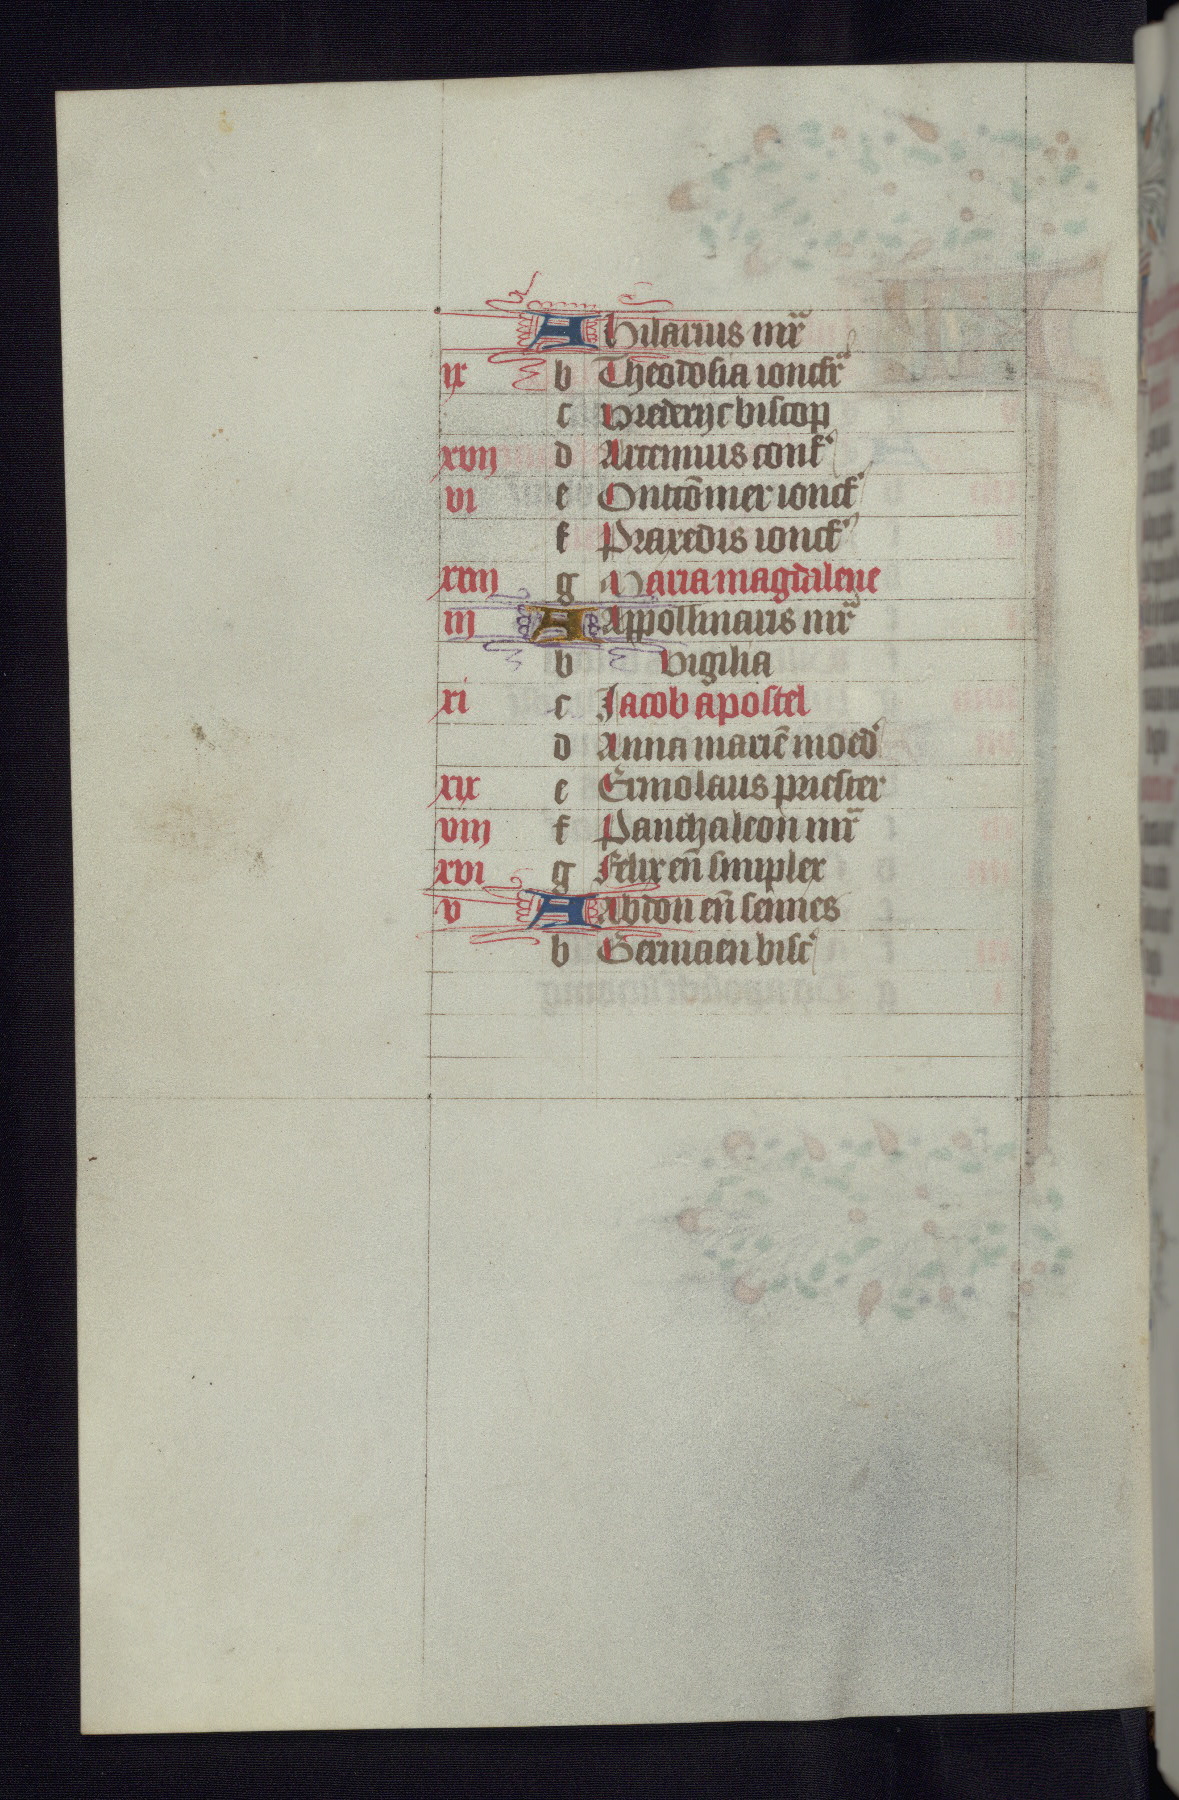 A hilarius mr̄
ix b Theodosia ionckr̄
c vrederijc biscop
xvij d Artemius conf᾽
vi e Ontcōmer ionckf᾽
f Praxedis ionckf᾽
xiiij g Maria magdalene
iij A Appollinaris mr̄
b vigilia
xi c Jacob apostel
d Anna mariē moed᾽
xix e Ermolaus priester
viij f Panthaleon mr̄
xvi g Felix eñ simplex
v A Abdon eñ sennes
b Germaen bisc᾽